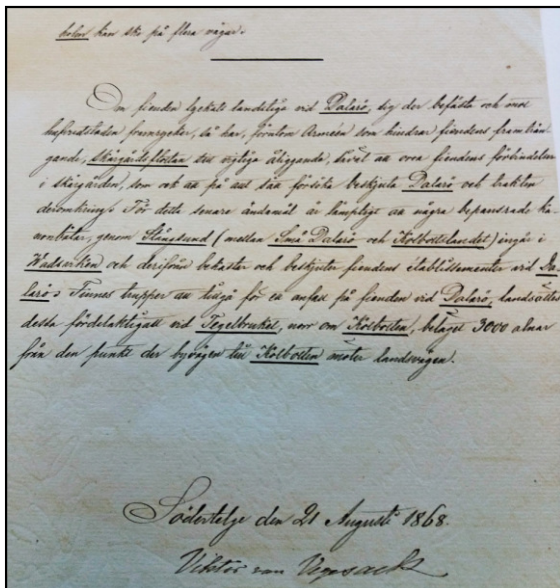 holm kan ske på flera vägar.
Om fienden lyckats landstiga vid Dalarö, sig der befästa och mot
hufvudstaden framrycker, så har, förutom Arméen som hindrar fiendens framträn-
gande, skärgårdsflottan det vigtiga åliggande, såväl att oroa fiendens förbindelser
i skärgården, som ock att på allt sätt försöka beskjuta Dalarö och trakten
deromkring. För detta senare ändamål är lämpligt att några bepansrade ka-
nonbåtar, genom Stångsund (mellan Små Dalarö och Kolbottslandet) ingår i
Wadsverken och derifrån bekasta och beskjuter fiendens etablissementer vid Da-
larö. Finnes trupper att tillgå för ett anfall på fienden vid Dalarö, landsättes
dessa fördelaktigast vid Tegelbruket, norr om Kolbotten, beläget 3000 alnar
från den punkt der byvägen till Kolbotten möter landsvägen.
Södertelge den 21 Augusti 1868.
Viktor von Vegesack